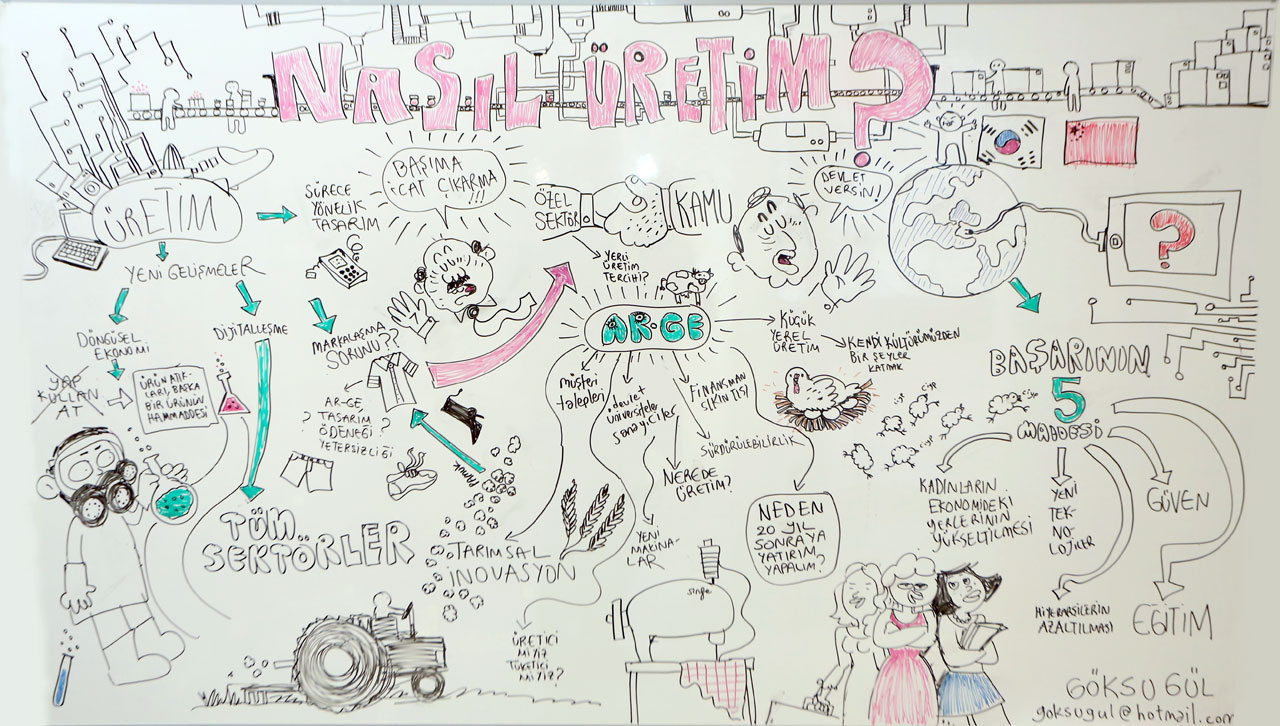 NASIL ÜRETİM?
ÜRETİM
SÜRECE
YÖNELİK
TASARIM
YENİ GELİŞMELER
DÖNGÜSEL
EKONOMİ
DİJİTALLEŞME
YAP
KULLAN
AT
ÜRÜN ATIK-
LARI, BAŞKA
BİR ÜRÜNÜN
HAMMADDESİ
TÜM
SEKTÖRLER
MARKALAŞMA
SORUNU??
AR-GE,
TASARIM
ÖDENEĞİ
YETERSİZLİĞİ
?
?
BAŞIMA
İCAT ÇIKARMA
!!!
ÖZEL
SEKTÖR
KAMU
YERLİ
ÜRETİM
TERCİHİ?
DEVLET
VERSİN!
AR-GE
müşteri
talepleri
devlet
üniversiteler
sanayiciler
FİNANSMAN
SIKINTISI
SÜRDÜRÜLEBİLİRLİK
NEREDE
ÜRETİM?
YENİ
MAKİNA-
LAR
KÜÇÜK
YEREL
ÜRETİM
KENDİ KÜLTÜRÜMÜZDEN
BİR ŞEYLER
KATMAK
Pamuk
TARIMSAL
İNOVASYON
ÜRETİCİ
MİYİZ
TÜKETİCİ
MİYİZ?
NEDEN
20 YIL
SONRAYA
YATIRIM
YAPALIM?
BAŞARININ
5
MADDESİ
KADINLARIN
EKONOMİDEKİ
YERLERİNİN
YÜKSELTİLMESİ
YENİ
TEK-
NO-
LOJİLER
GÜVEN
HİYERARŞİLERİN
AZALTILMASI
EĞİTİM
?
GÖKSU GÜL
goksugul@hotmail.com